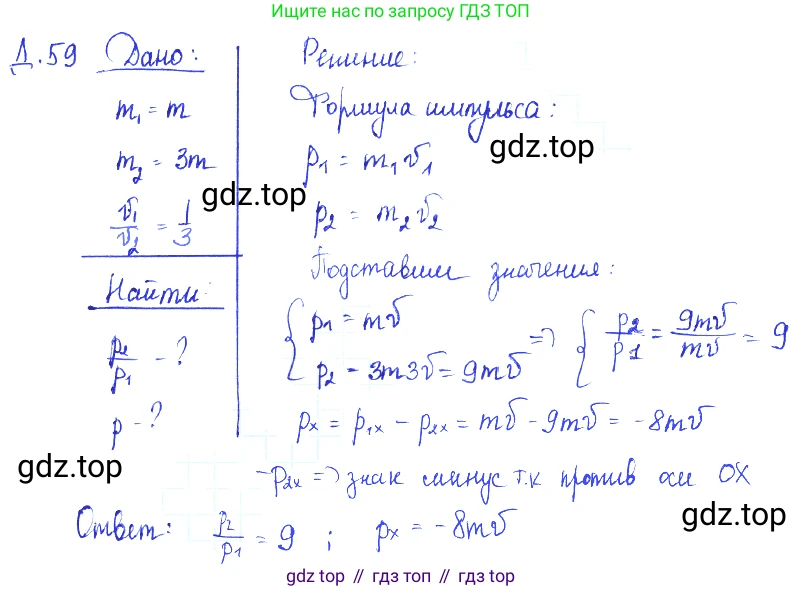 Ищите нас по запросу ГДЗ ТОП
Д.59 Дано:
m₁ = m
m₂ = 3m
v₁/v₂ = 1/3
Найти:
p₂/p₁ - ?
p - ?
Решение:
Формула импульса:
p₁ = m₁v₁
gdz.top
gdz.top
p₂ = m₂v₂
Подставим значения:
{ p₁ = mv
p₂ = 3m3v = 9mv
=> { p₂/p₁ = 9mv/mv = 9
pₓ = p₁ₓ - p₂ₓ = mv - 9mv = -8mv
gdz.top
-p₂ₓ => знак минус т.к против оси OX
gdz.top
Ответ: p₂/p₁ = 9 ; pₓ = -8mv
gdz top // гдз топ // gdz top